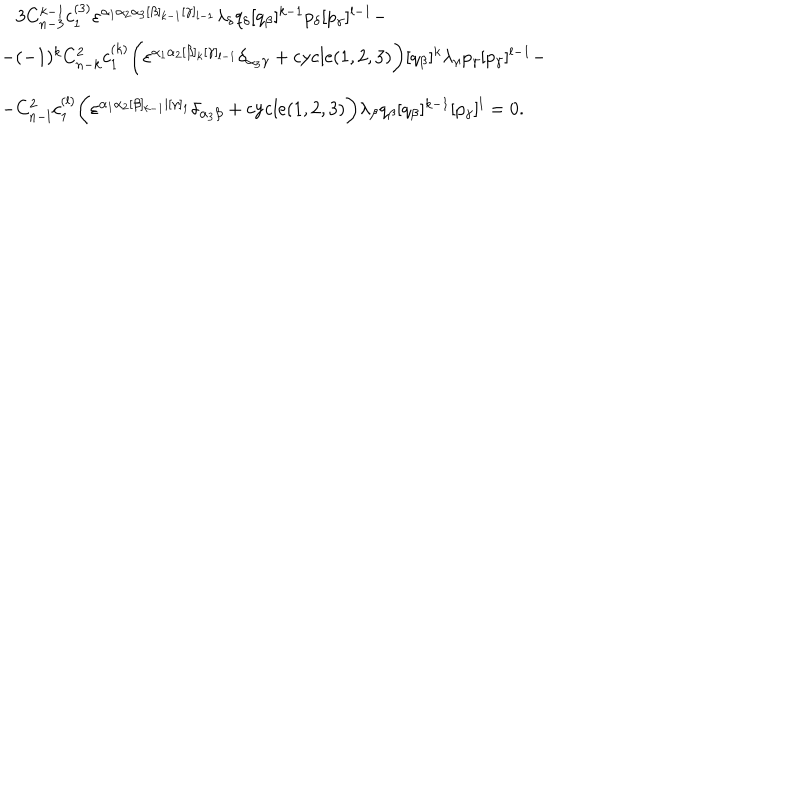 3C_{n-3}^{k-1}c_1^{(3)}ε^{α_1α_2α_3[β]_{k-1}[γ]_{l-1}}λ_δq_δ[q_β]^{k-1}p_δ[p_γ]^{l-1}−
−(−1)^kC_{n-k}^2c_1^{(k)}(ε^{α_1α_2[β]_k[γ]_{l-1}}δ_{α_3γ} + cycle(1,2,3))[q_β]^kλ_γp_γ[p_γ]^{l-1}−
−C_{n-l}^2c_1^{(l)}(ε^{α_1α_2[β]_{k-1}|[γ]_l}δ_{α_3β} + cycle(1,2,3))λ_βq_β[q_β]^{k-1}[p_γ]^l = 0.